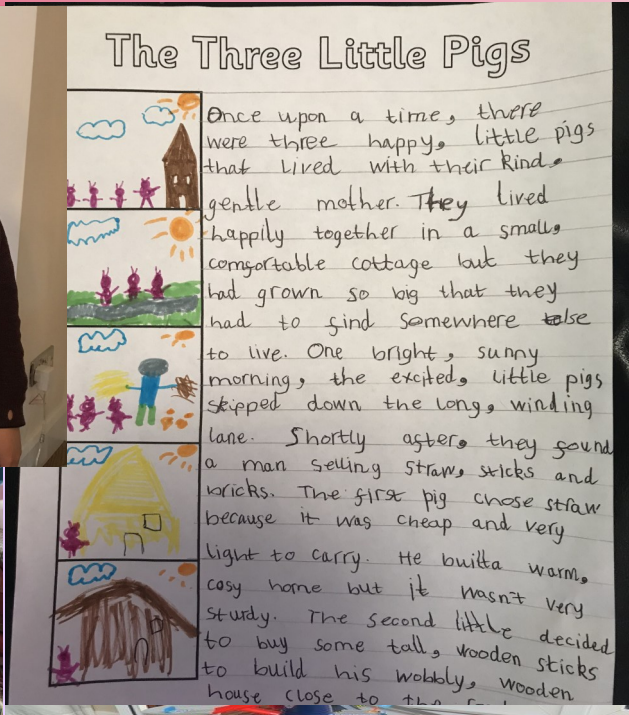 The Three Little Pigs
Once upon a time, there
were three happy, little pigs
that lived with their kind,
gentle mother. They lived
happily together in a small,
comfortable cottage but they
had grown so big that they
had to find somewhere else
to live. One bright, sunny
morning, the excited, little pigs
skipped down the long, winding
lane. Shortly after, they found
a man selling straw, sticks and
bricks. The first pig chose straw
because it was cheap and very
light to carry. He built a warm,
cosy home but it wasn't very
sturdy. The second little decided
to buy some tall, wooden sticks
to build his wobbly, wooden
house close to the